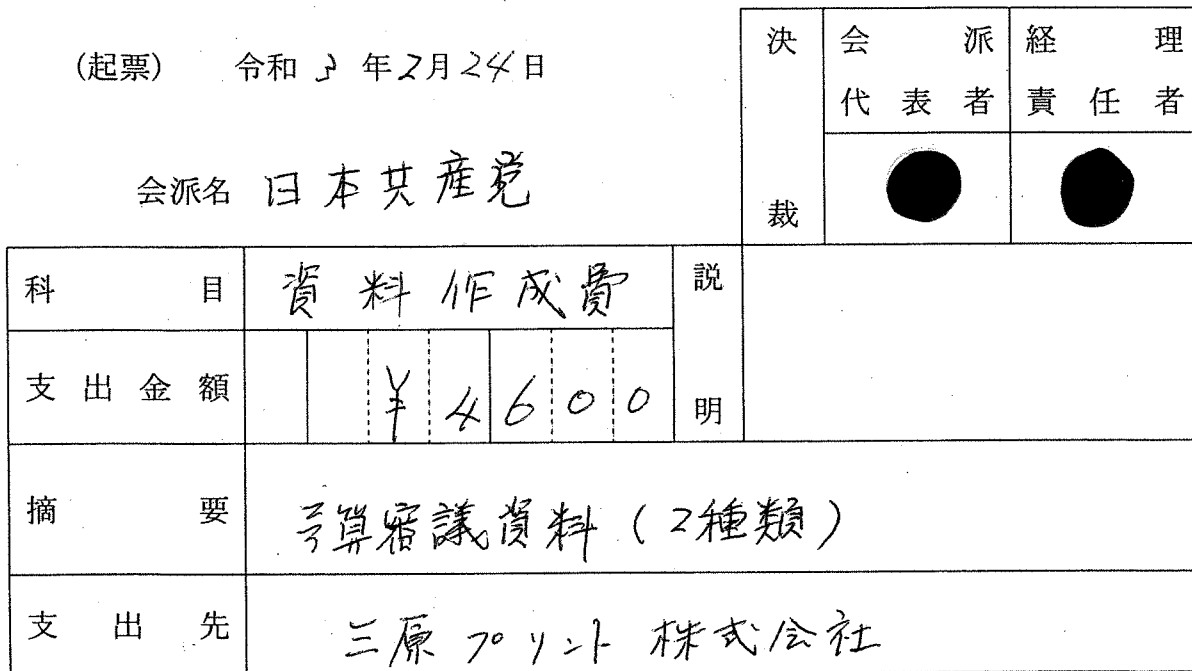 (起票) 令和3年2月24日
会派名 日本共産党
決裁
会派代表者
経理責任者
科目 資料作成費
説明
支出金額 ¥4600
摘要 予算審議資料(2種類)
支出先 三原プリント株式会社